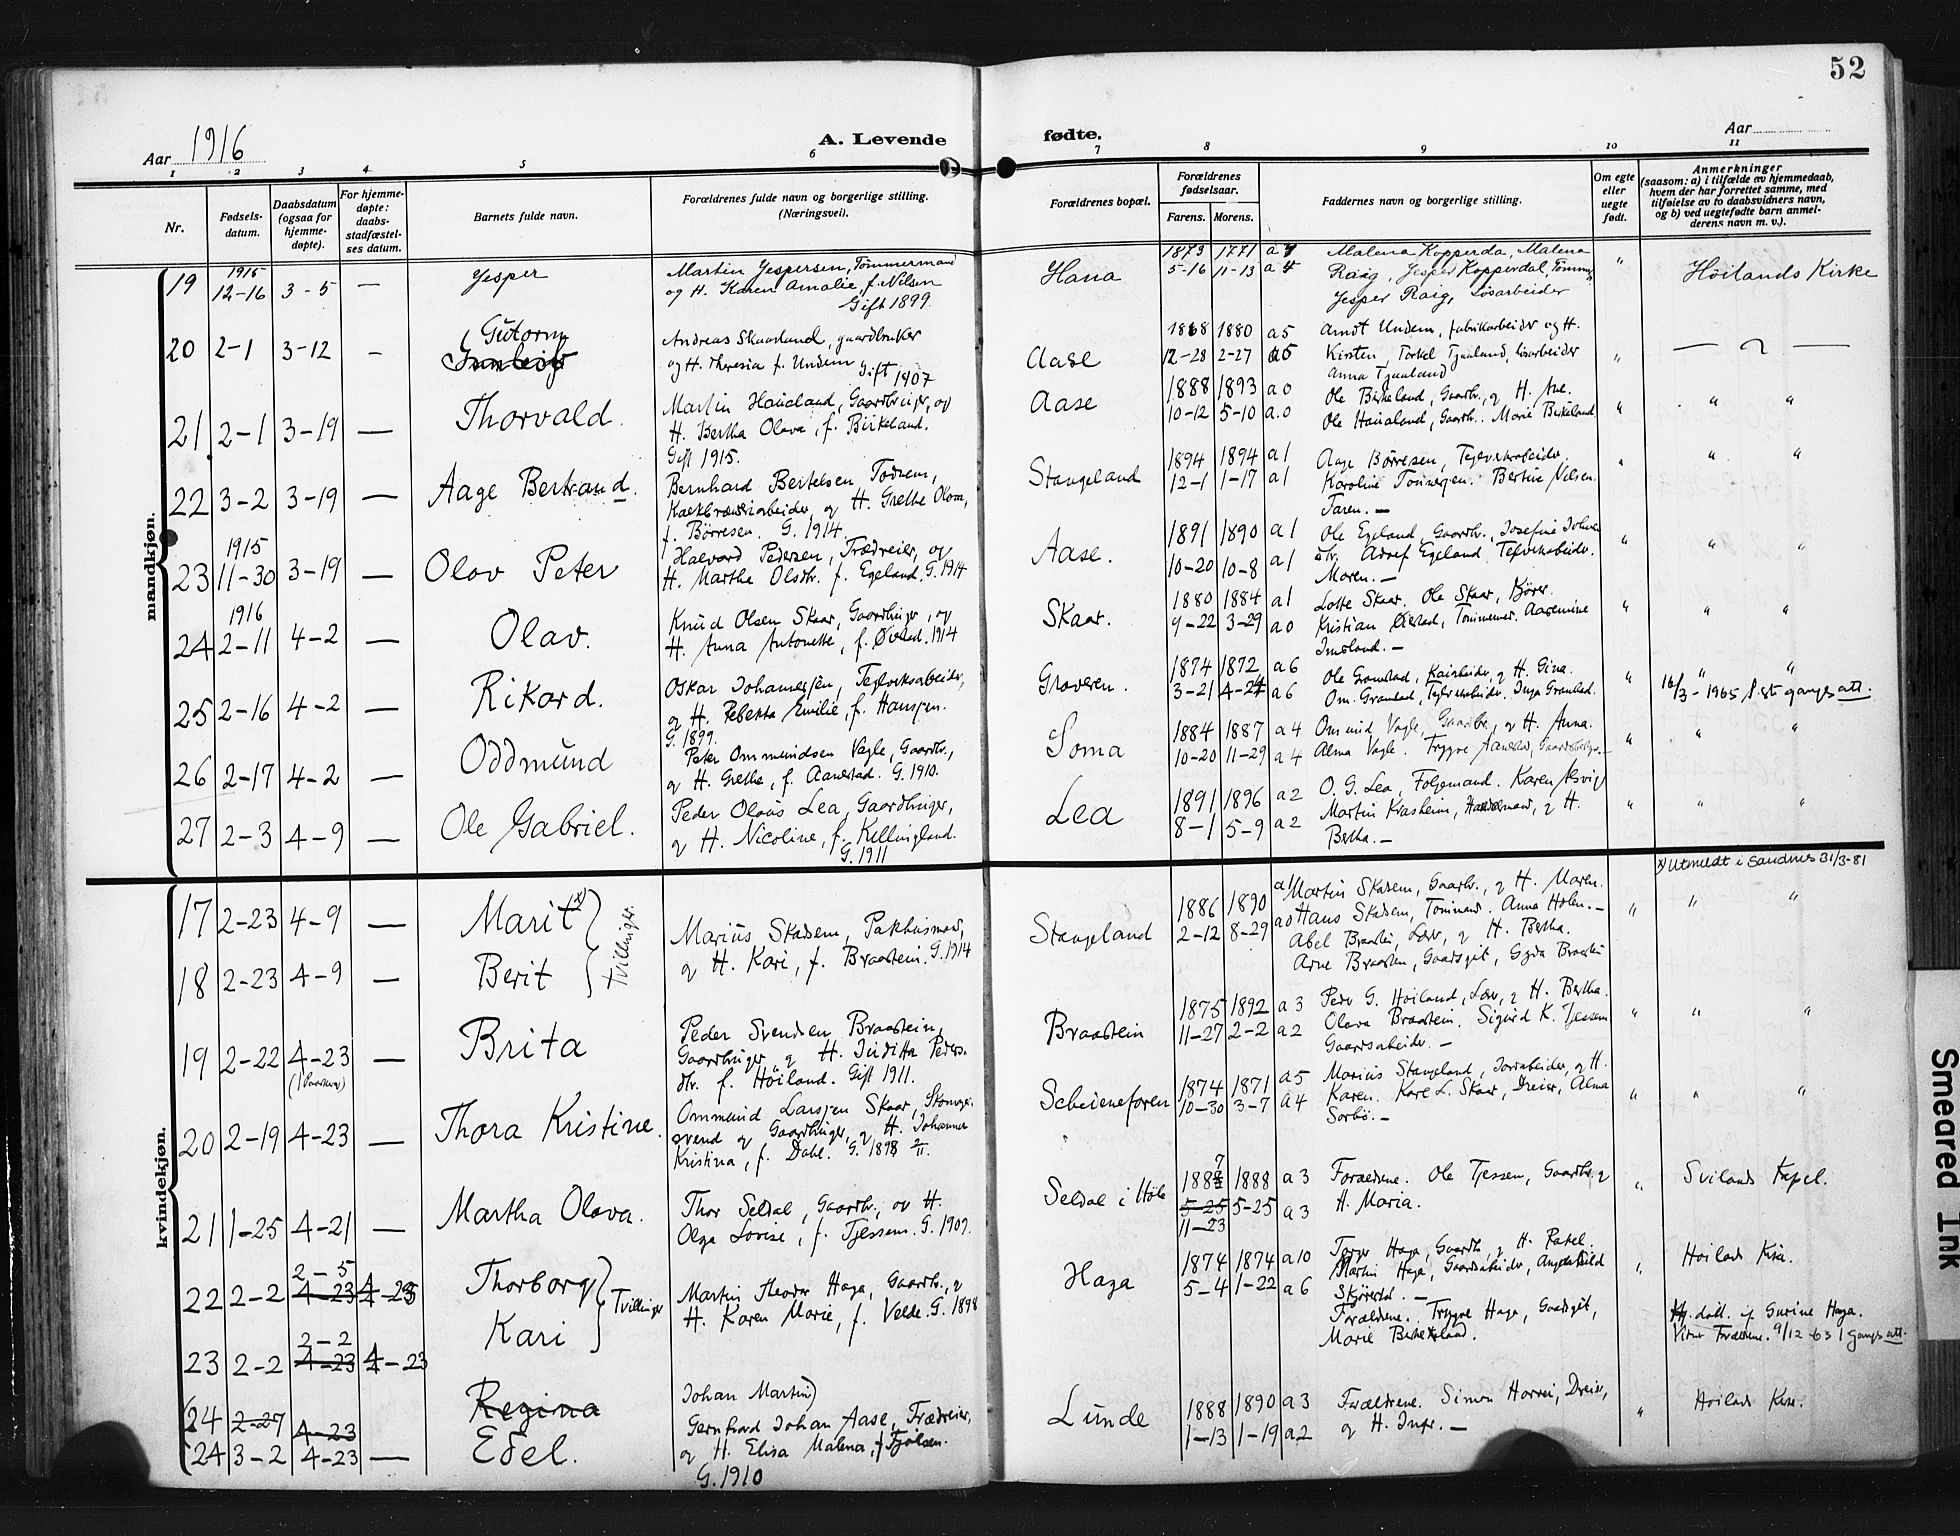 52
Aar 1916
A. Levende
fødte.
Aar
1 2 3 4 5 6 7 8 9 10 11
Nr.
Fødsels-
datum.
Daabsdatum
(ogsaa for
hjemme-
døpte).
For hjemme-
døpte:
daabs-
stadfæstel-
ses datum.
Barnets fulde navn.
Forældrenes fulde navn og borgerlige stilling.
(Næringsvei).
Forældrenes bopæl.
Forældrenes
fødselsaar.
Farens. Morens.
Faddernes navn og borgerlige stilling.
Om egte
eller
uegte
født.
Anmerkninger
(saasom: a) i tilfælde av hjemmedaab,
hvem der har forrettet samme, med
tilføielse av to daabsvidners navn,
og b) ved uegtefødte barn anmel-
derens navn m. v.).
mandkjøn.
19 1915 12-16 3-5 — Jesper
Martin Jespersen, Tømmermand
og H. Karen Amalie, f. Nilsen
Gift 1899.
Hana
1873 1771 a 7
5-16 11-13 a 4
Malena Kopperda, Malena
Raig, Jesper Kopperdal, Tømm
Jesper Raig, Løsarbeider
" Høilands Kirke
20 2-1 3-12 — Gutorm
Andreas Skaarland, gaardbruker
og H. Theresia f. Undem Gift 1907
Aase
1868 1880 a 5
12-28 2-27 a 5
Arndt Undem, fabrikarbeider og H.
Kirsten, Torkel Tjaaland, løsarbeider
Anna Tjaaland
21 2-1 3-19 — Thorvald.
Martin Haualand, Gaardbruger, og
H. Bertha Olava, f. Birkeland.
Gift 1915.
Aase
1888 1893 a 0
10-12 5-10 a.0
Ole Birkeland, Gaardb., og H.
Ole Haualand, Gaardb. Marie Birkeland
" " "
22 3-2 3-19 — Aage Bertrand.
Bernhard Bertelsen Todnem,
Kalkbrænderiarbeider, og H. Grethe Olava,
f. Børresen. G. 1914.
Stangeland
1894 1894 a 1
12-1 1-17 a 1
Aage Børresen, Teglverksarbeider.
Karoline Tønnesen. Bertine Nilsen.
Faren. —
" " "
23 1915 11-30 3-19 — Olav Peter
Halvard Pedersen, Trædreier, og
H. Martha Olsdtr. f. Egeland. G. 1914
Aase.
1891 1890 a 1
10-20 10-8 a 1
Ole Egeland, Gaardbr., Josefine
dtr. Adolf Egeland Teglverksarbeider.
Moren. —
" " "
24 1916 2-11 4-2 — Olav.
Knud Olsen Skaar, Gaardbruger, og
H. Anna Antonette, f. Østad. 1914
Skaar.
1880 1884 a 1
9-22 3-29 a 0
Lotte Skaar. Ole Skaar, Kjører.
Kristian Østad, Tømmermd.
Imsland. —
" " "
25 2-16 4-2 — Rikard.
Oskar Johannessen, Teglverksarbeider,
og H. Rebekka Emilie, f. Hanssen.
G. 1899.
Graveren.
1874 1872 a 6
3-21 4-24 a 6
Ole Gramstad, Kaiarbeider, og H. Gina.
Om. Gramstad, Teglverksarbeider. Inga Gramstad.
" " "
16/3-1965 1ste gangs att.
26 2-17 4-2 — Oddmund
Peter Ommundsen Vagle, Gaardbr.,
og H. Grethe, f. Aanestad. G. 1910.
Soma
1884 1887 a 4
10-20 11-29 a 4
Ommund Vagle, Gaardbr., og H. Anna.
Alma Vagle. Trygve Aanestad, Gaardbruger. —
" " "
27 2-3 4-9 — Ole Gabriel.
Peder Olaus Lea, Gaardbruger,
og H. Nicoline, f. Kellingland.
G. 1911
Lea
1891 1896 a 2
8-1 5-9 a 2
O. G. Lea, Folgemand. Karen Asvig
Martin Krasheim, Handelsmand, og H.
Bertha. —
" " "
kvindekjøn.
x) Utmeldt i Sandnes 31/3-81
17 2-23 4-9 — Marit x)
18 2-23 4-9 — Berit
Tvillinger.
Marius Skadsem, Pakhusmand,
og H. Kari, f. Braastein. G. 1914
Stangeland
1886 1890 a 1
2-12 8-29 a 0
Martin Skadsem, Gaardbr., og H. Maren.
Hans Skadsem, Tømmermd. Anna Holen. —
Abel Braastein, og H. Bertha.
Arne Braastein, Gaardsgut, Gyda Braastein
" " "
19 2-22 4-23 — Brita
Peder Svendsen Braastein,
Gaardbruger, og H. Inditta Peders-
dtr. f. Høiland. Gift 1911.
Braastein
1875 1892 a 3
11-27 2-2 a 2
Peder G. Høiland, og H. Bertha.
Olava Braastein. Sigurd K. Tjessem
Gaardsarbeider. —
" " "
20 2-19 4-23 — Thora Kristine.
Ommund Larssen Skaar, Skomager-
svend og Gaardbruger, og H. Johanne
Kristina, f. Dahl. G. 1898 2/11.
Scheieneforen
1874 1871 a 5
10-30 3-7 a 4
Marius Stangeland, Jernarbeider, og H.
Karen. Kare L. Skaar, Dreier, Alma
Sørbø. —
" " "
21 1-25 4-21 — Martha Olava.
Thor Seldal, Gaardbr., og H.
Olga Lovise, f. Tjessem. G. 1909.
Seldal i Høle
1887 1888 a 3
5-25 5-25 a 3
11-23
Forældrene. Ole Tjessem, Gaardbr. og
H. Maria.
" Svilands Kapel.
22 2-2 2-5 4-23 4-23 Thorborg
23 2-2 2-2 4-23 4-23 Kari
Tvillinger
Martin Theodor Haga, Gaardbr., og
H. Karen Marie, f. Velde. G. 1898
Haga
1874 1874 a 10
5-4 1-22 a 6
Torger Haga, Gaardb., og H. Rakel.
Martin Haga, Gaardsarbeider,
Skjørestad. —
Forældrene. Trygve Haga, Gaardsgut,
Marie Birkeland.
" Høilands Kirke.
Hj. døbt. af Gurine Haga.
Vidner Forældrene. 9/12-63 1 gangs att.
24 2-27 4-23 Regina
24 3-2 4-23 — Edel.
Johan Martin)
Gernhard Johan Aase, Trædreier,
og H. Elisa Malena, f. Fjølsen.
G. 1910
Lunde
1888 1890 a 3
1-13 1-19 a 2
Forældrene. Simon Harvei, Dreier,
og H. Inger. —
" Høilands Kirke.
Smeared Ink